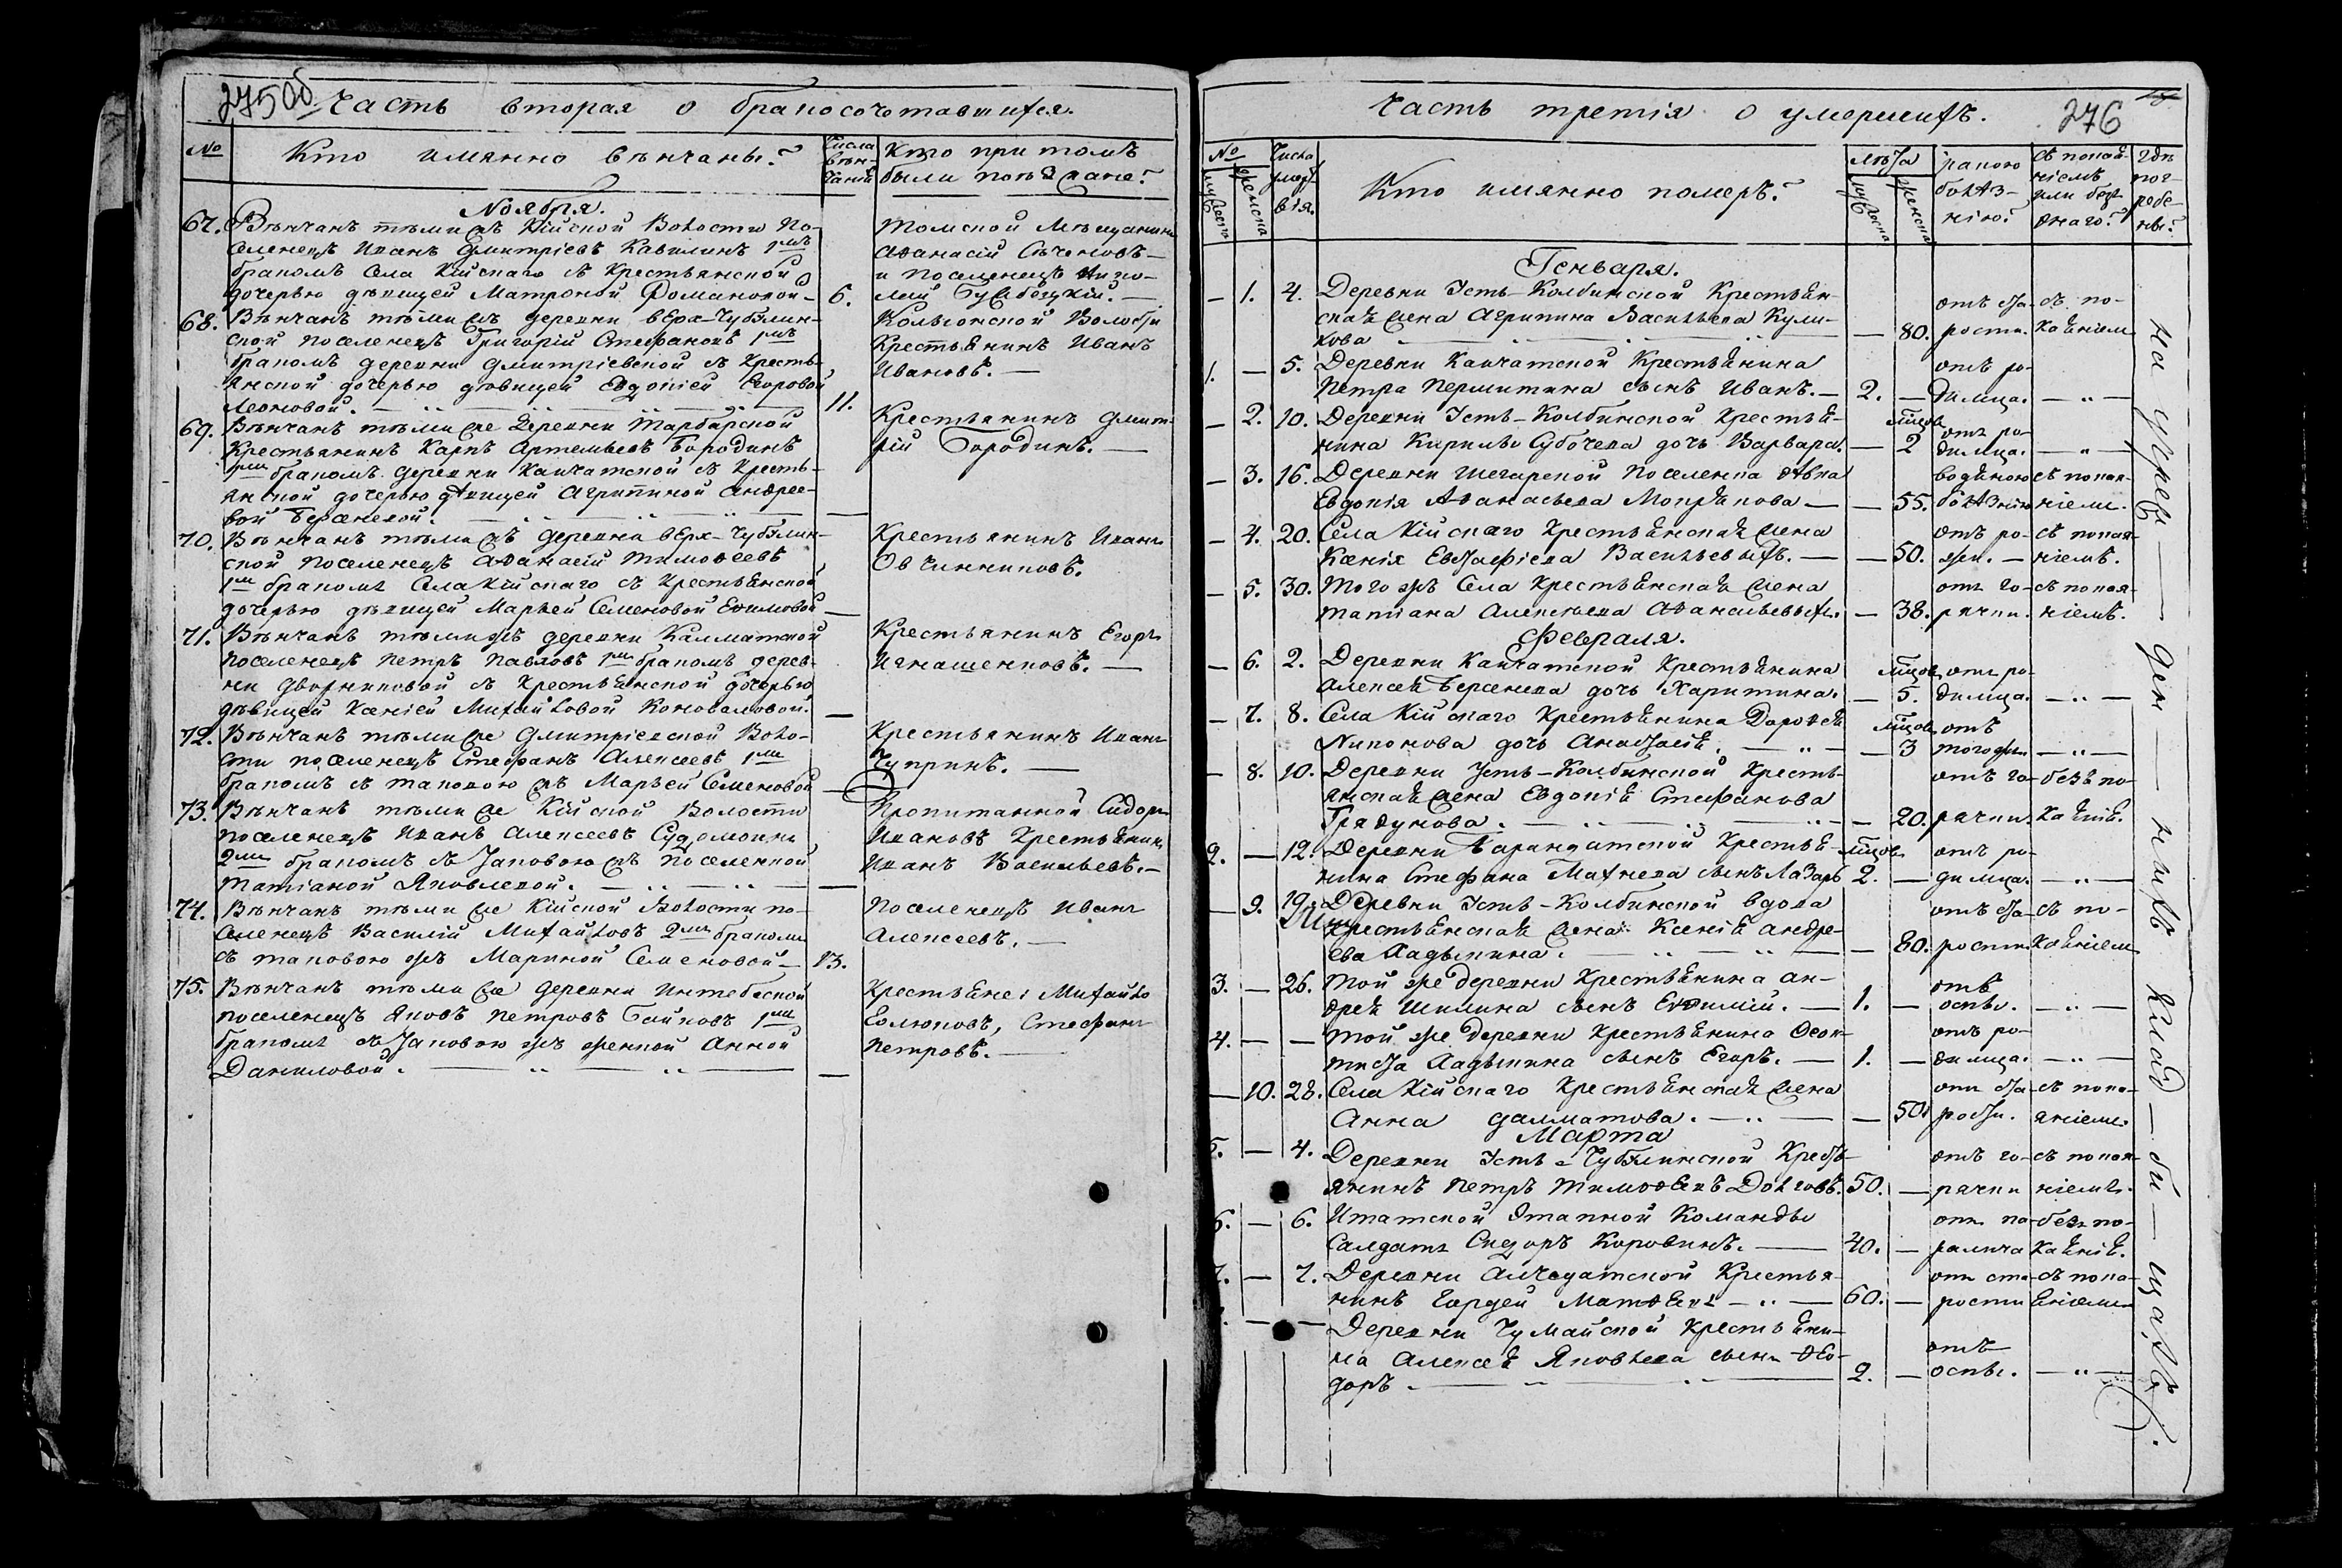 275об
Часть вторая о бракосочетавшихся.
№
Кто имянно вѣнчаны?
Числа вѣн-
чанія
Кто при томъ
были поѣзжане?
Ноября.
67. Вѣнчанъ тѣмижъ Кійской Волости По-
селенецъ Иванъ Дмитріевъ 1мъ
бракомъ Села Кійскаго съ Крестьянской
дочерью дѣвицей Матроной Романовой — 6.
Томской Мѣщанинъ
Аѳанасій
и Поселенецъ
68. Вѣнчанъ тѣмижъ деревни верхъ-Чубулин-
ской поселенецъ Григорій Стефановъ 1мъ
бракомъ деревни Дмитріевской съ Кресть-
янской дочерью дѣвицей Евдокіей Егоровой
Леоновой. — 11.
Волости
Крестьянинъ Иванъ
Ивановъ. —
69. Вѣнчанъ тѣмиже Деревни Тарбарской
Крестьянинъ Карпъ Артемьевъ Бородинъ
1мъ бракомъ деревни Камчатской съ Кресть-
янской дочерью дѣвицей Агрипиной Андрее-
вой Берсеневой. —
Крестьянинъ Дмит-
рій Бородинъ. —
70. Вѣнчанъ тѣмижъ деревни верхъ-Чубулин-
ской поселенецъ Аѳанасій Тимоѳеевъ
1мъ бракомъ Села Кійскаго съ Крестьянской
дочерью дѣвицей Марьей Семеновой Ефимовой —
Крестьянинъ Иванъ
Овчинниковъ.
71. Вѣнчанъ тѣмижъ деревни
поселенецъ Петръ Павловъ 1мъ бракомъ дерев-
ни Дворниковой съ Крестьянской дочерью
дѣвицей Ксеніей Михайловой Коноваловой. —
Крестьянинъ Егоръ
Игнашенковъ. —
72. Вѣнчанъ тѣмиже Дмитріевской Воло-
сти поселенецъ Стефанъ Алексеевъ 1мъ
бракомъ съ таковою жъ Марьей Семеновой —
Крестьянинъ Иванъ
Чупринъ. —
73. Вѣнчанъ тѣмиже Кійской Волости
поселенецъ Иванъ Алексеевъ
2мъ бракомъ съ таковою жъ Поселенкой
Татіаной Яковлевой. —
Пропитанной Сидоръ
Ивановъ Крестьянинъ
Иванъ Васильевъ. —
74. Вѣнчанъ тѣмиже Кійской Волости по-
селенецъ Василій Михайловъ 2мъ бракомъ
съ таковою жъ Мариной Семеновой — 13.
Поселенецъ Иванъ
Алексеевъ. —
75. Вѣнчанъ тѣмиже деревни Интебеской
поселенецъ Яковъ Петровъ Байковъ 1мъ
бракомъ съ таковою жъ женкой Анной
Даниловой. —
Крестьяне: Михайло
Стефанъ
Петровъ. —
Часть третія о умершихъ.
276
№
мужеска
женска
Числа
умер-
твія.
Кто имянно померъ?
лѣта
мужеска
женска
какою
болѣз-
нію?
съ покая-
ніемъ
или безъ
онаго?
Гдѣ
пог-
ребе-
ны?
Генваря.
— 1. 4. Деревни Усть-Колбинской Крестьян-
ская жена Агрипина Васильева Кули-
кова — 80. отъ ста-
рости. съ по-
каяніемъ
1. — 5. Деревни Камчатской Крестьянина
Петра Першитина сынъ Иванъ. — 2. — отъ ро-
димца. —
— 2. 10. Деревни Усть-Колбинской Крестья-
нина Кирилы Субочева дочь Варвара. — мцов 2 отъ ро-
димца. —
— 3. 16. Деревни Шегарской Поселенка
Евдокія Аѳанасьева Мокрякова — 55. водяною
болѣзнію съ покая-
ніемъ.
— 4. 20. Села Кійскаго Крестьянская жена
Ксенія Евстафіева Васильевыхъ. — 50. отъ ро-
жи. — съ покая-
ніемъ.
— 5. 30. Того жъ Села Крестьянская жена
Татіана Алексеева Аѳанасьевыхъ. — 38. отъ го-
рячки. съ покая-
ніемъ.
Февраля.
— 6. 2. Деревни Камчатской Крестьянина
Алексея Берсенева дочь Харитина. — мцов 5. отъ ро-
димца. —
— 7. 8. Села Кійскаго Крестьянина Дороѳея
Никонова дочь Анастасія. — мцов 3 отъ
тогожъ —
— 8. 10. Деревни Усть-Колбинской Кресть-
янская жена Евдокія Стефанова
Грядунова. — 20. отъ го-
рячки безъ по-
каянія.
2. — 12. Деревни Барандатской Крестья-
нина Стефана Махнева сынъ Лазарь мцов 2. — отъ ро-
димца. —
— 9. 19. Деревни Усть-Колбинской вдова
Крестьянская жена Ксенія Андре-
ева Ладыгина. — 80. отъ ста-
рости съ по-
каяніемъ
3. — 26. Той же деревни Крестьянина Ан-
дрея Шилина сынъ Евѳимій. — 1. — отъ
оспы. —
4. — — Той же деревни Крестьянина Ѳеок-
тиста Ладыгина сынъ Егоръ. — 1. — отъ ро-
димца. —
— 10. 28. Села Кійскаго Крестьянская жена
Анна Далматова. — 50. отъ ста-
рости. съ пока-
яніемъ.
Марта
5. — 4. Деревни Усть-Чубулинской Кресть-
янинъ Петръ Тимоѳеевъ Долговъ. 50. — отъ го-
рячки съ покая-
ніемъ.
6. — 6. Итатской Этапной Команды
Салдатъ Сидоръ Коровинъ. — 40. — отъ па-
ралича безъ по-
каянія.
7. — 7. Деревни Алчедатской Крестья-
нинъ Гордей Матѳеевъ — 60. — отъ ста-
рости съ пока-
яніемъ
— — Деревни Чумайской Крестьяни-
на Алексея Яковлева сынъ Ѳео-
доръ — 2. — отъ
оспы. —
на учреж — ден — ныхъ клад — би — щахъ.